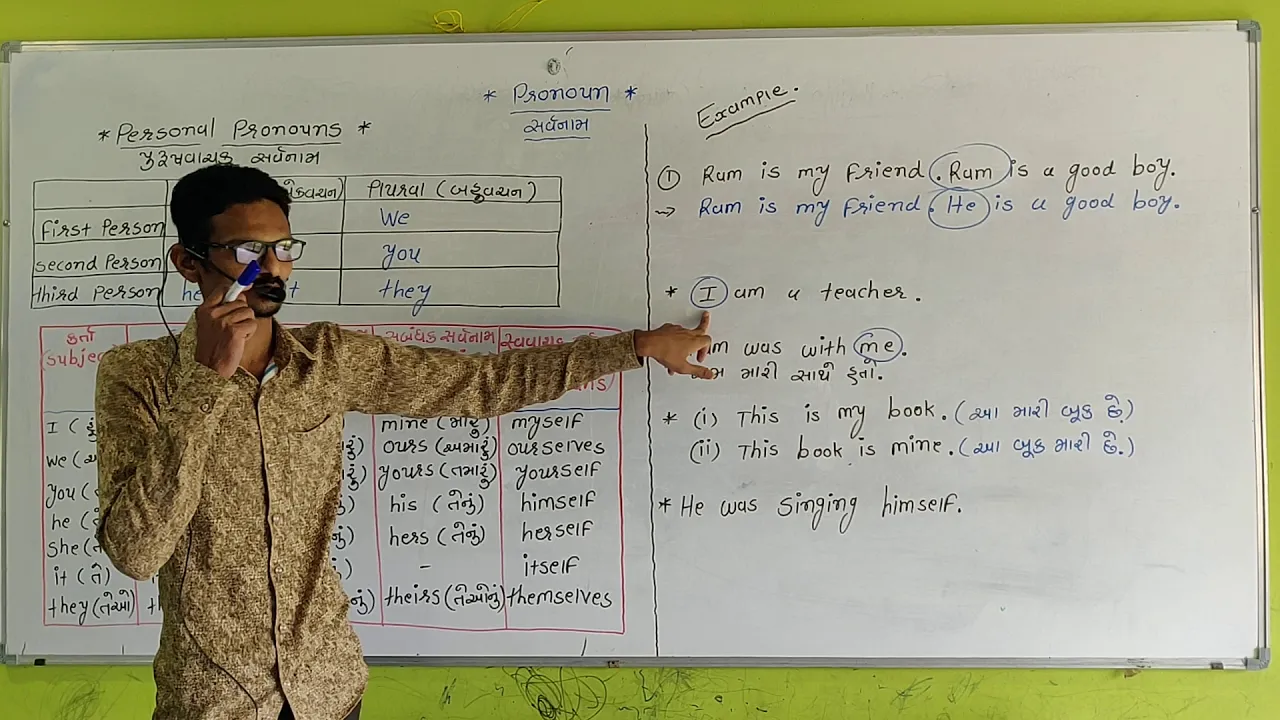 * Pronoun *
સર્વનામ
* Personal Pronouns *
પુરૂષવાચક સર્વનામ
Plural (બહુવચન)
First Person We
second Person you
third Person he they
કર્તા સબંધક સર્વનામ
subject
I ( mine (મારું) myself
we ( ours (અમારું) ourselves
you ( yours (તમારું) yourself
he ( his (તેનું) himself
she ( hers (તેનું) herself
it (તે) - itself
they (તેઓ) theirs (તેઓનું) themselves
Example.
① Ram is my friend. Ram is a good boy.
→ Ram is my friend. He is a good boy.
* I am a teacher.
was with me.
મારી સાથે હતો.
* (i) This is my book. (આ મારી બૂક છે.)
(ii) This book is mine. (આ બૂક મારી છે.)
* He was singing himself.